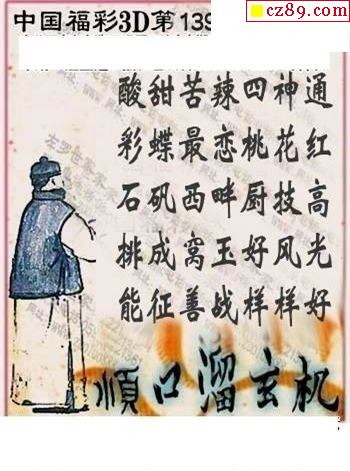 cz89.com
中国福彩3D第139
酸甜苦辣四神通
彩蝶最恋桃花红
石矶西畔厨技高
排成窝玉好风光
能征善战样样好
順口溜玄机